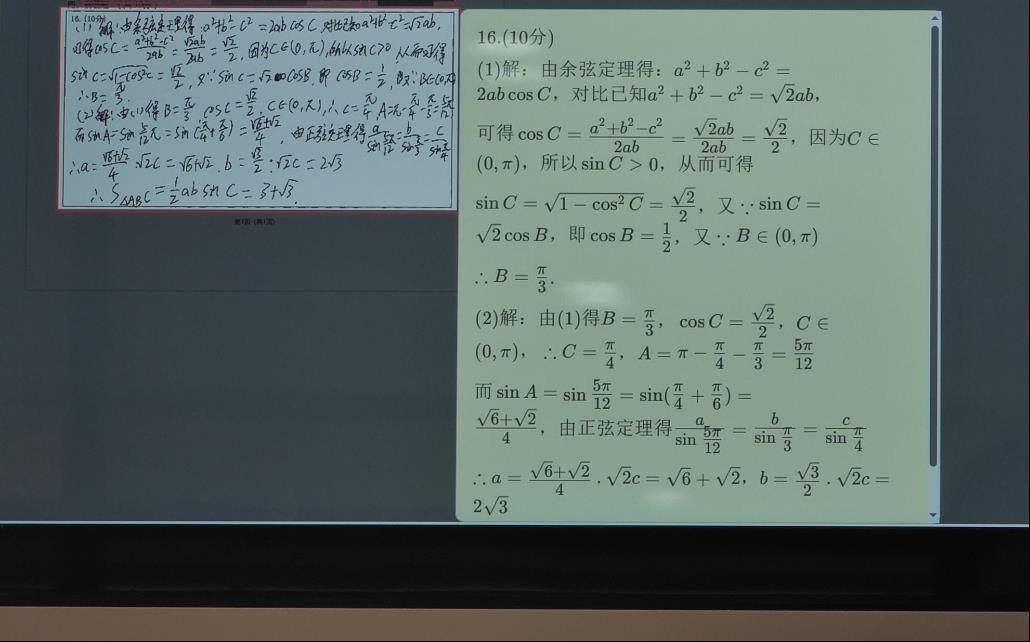 16.(10分)
(1)解：由余弦定理得：a²+b²-c²=2abcosC, 对比已知a²+b²-c²=√2ab,
可得cosC=(a²+b²-c²)/2ab=√2ab/2ab=√2/2, 因为C∈(0,π),所以sinC>0 从而可得
sinC=√(1-cos²C)=√2/2, 又∵sinC=√2cosB, 即cosB=1/2, 又∵B∈(0,π)
∴B=π/3.
(2)解：由(1)得B=π/3, cosC=√2/2, C∈(0,π),∴C=π/4, A=π-π/4-π/3=5π/12
而sinA=sin5/12π=sin(π/4+π/6)=(√6+√2)/4, 由正弦定理得a/sin5π/12=b/sinπ/3=c/sinπ/4
∴a=(√6+√2)/4·√2c=√6+√2, b=√3/2·√2c=2√3
∴S△ABC=1/2absinC=3+√3.
第1页 (共1页)
16.(10分)
(1)解：由余弦定理得：a²+b²-c²=
2abcosC，对比已知a²+b²-c²=√2ab，
可得cosC=(a²+b²-c²)/2ab=√2ab/2ab=√2/2，因为C∈
(0,π)，所以sinC>0，从而可得
sinC=√(1-cos²C)=√2/2，又∵sinC=
√2cosB，即cosB=1/2，又∵B∈(0,π)
∴B=π/3.
(2)解：由(1)得B=π/3，cosC=√2/2，C∈
(0,π)，∴C=π/4，A=π-π/4-π/3=5π/12
而sinA=sin5π/12=sin(π/4+π/6)=
(√6+√2)/4，由正弦定理得a/sin5π/12=b/sinπ/3=c/sinπ/4
∴a=(√6+√2)/4·√2c=√6+√2，b=√3/2·√2c=
2√3